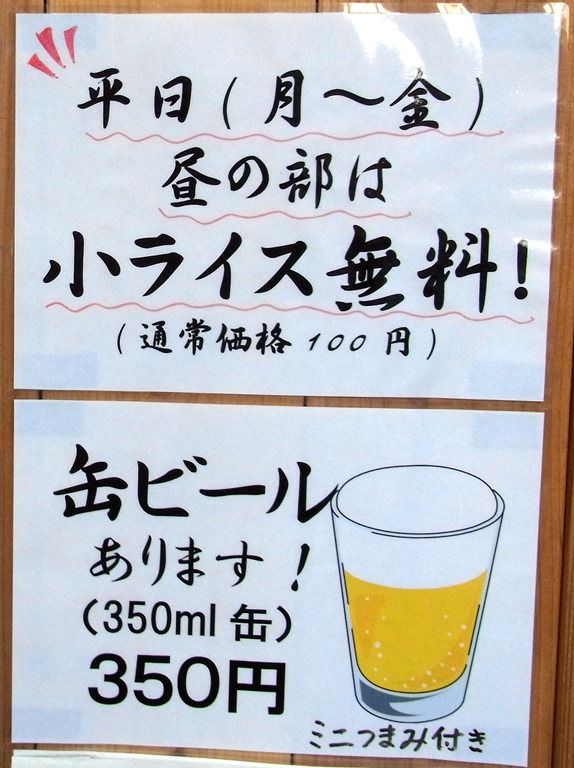 平日(月～金)
昼の部は
小ライス無料!
(通常価格100円)
缶ビール
あります!
(350ml缶)
350円
ミニつまみ付き